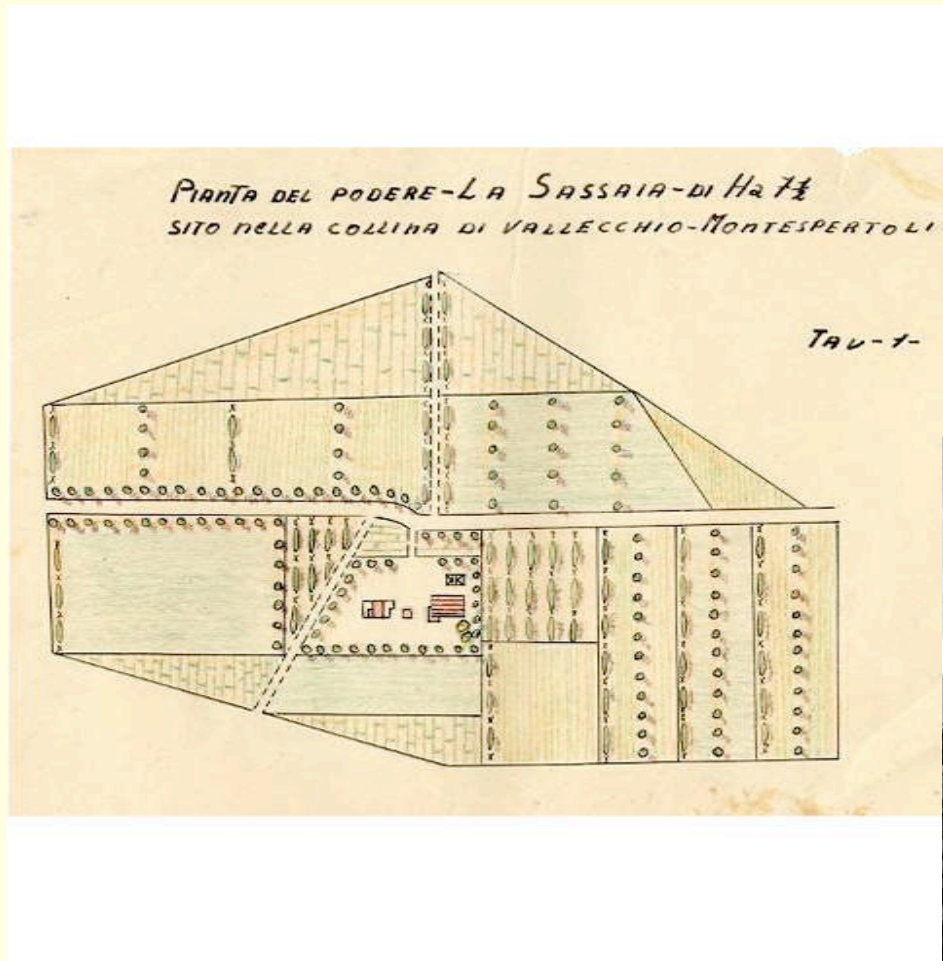 PIANTA DEL PODERE-LA SASSAIA-DI Ha 7½
SITO NELLA COLLINA DI VALLECCHIO-MONTESPERTOLI
TAV-1-